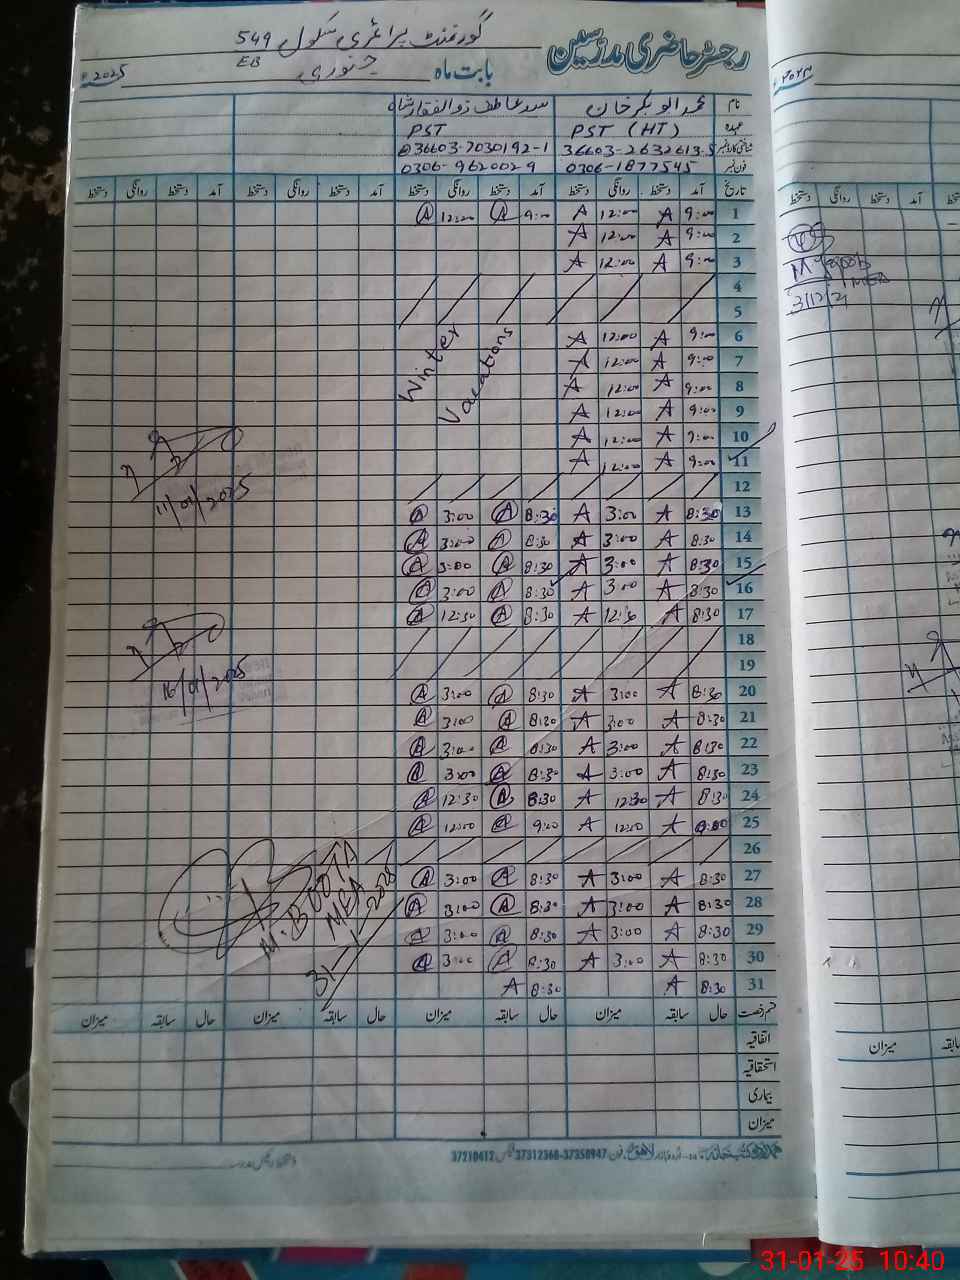 رجسٹر حاضری مدرسین گورنمنٹ پرائمری سکول 549
EB
بابت ماہ جنوری 2025ء
نام محمد ابوبکر خان سید عاطف ذوالفقار شاہ
عہدہ PST (HT) PST
شناختی کارڈ نمبر 36603-2632613-5 36603-7030192-1
فون نمبر 0306-1877545 0306-9620029
تاریخ آمد دستخط روانگی دستخط آمد دستخط روانگی دستخط آمد دستخط روانگی دستخط آمد دستخط روانگی دستخط
1 9:00 A 12:00 A 9:00 A 12:00 A
2 9:00 A 12:00 A
3 9:00 A 12:00 A
4
5
6 9:00 A 12:00 A
7 9:00 A 12:00 A
8 9:00 A 12:00 A
9 9:00 A 12:00 A
10 9:00 A 12:00 A
11 9:00 A 12:00 A
Winter
Vacations
12
13 8:30 A 3:00 A 8:30 A 3:00 A
14 8:30 A 3:00 A 8:30 A 3:00 A
15 8:30 A 3:00 A 8:30 A 3:00 A
16 8:30 A 3:00 A 8:30 A 3:00 A
17 8:30 A 12:30 A 8:30 A 12:30 A
18
19
20 8:30 A 3:00 A 8:30 A 3:00 A
21 8:30 A 3:00 A 8:30 A 3:00 A
22 8:30 A 3:00 A 8:30 A 3:00 A
23 8:30 A 3:00 A 8:30 A 3:00 A
24 8:30 A 12:30 A 8:30 A 12:30 A
25 9:00 A 12:00 A 9:00 A 12:00 A
26
27 8:30 A 3:00 A 8:30 A 3:00 A
28 8:30 A 3:00 A 8:30 A 3:00 A
29 8:30 A 3:00 A 8:30 A 3:00 A
30 8:30 A 3:00 A 8:30 A 3:00 A
31 8:30 A 8:30 A
11/01/2025
16/01/2025
M. BOOTA
MEA
31-1-2025
قسم رخصت حال سابقہ میزان حال سابقہ میزان حال سابقہ میزان حال سابقہ میزان
اتفاقیہ
استحقاقیہ
بیماری
میزان
فون 37350947-37312360 فیکس 37210412
دستخط رئیس مدرسہ
دستخط روانگی دستخط آمد
MEA
3/12/2
میزان سابقہ
31-01-25 10:40